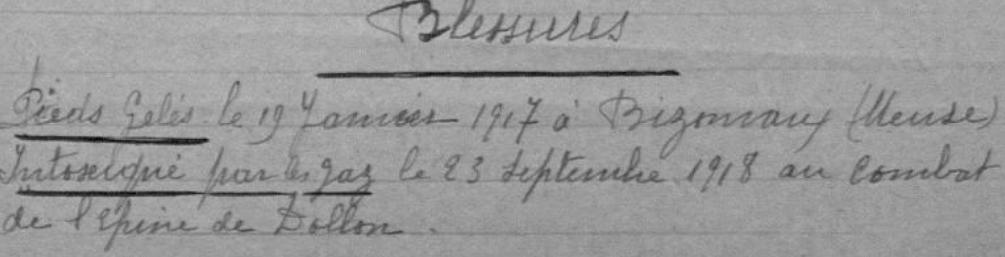 Blessures
Pieds Gelés le 19 Janvier 1917 à Bizonvaux (Meuse)
Intoxiqué par les gaz le 23 Septembre 1918 au combat
de l'Epine de Dallon.